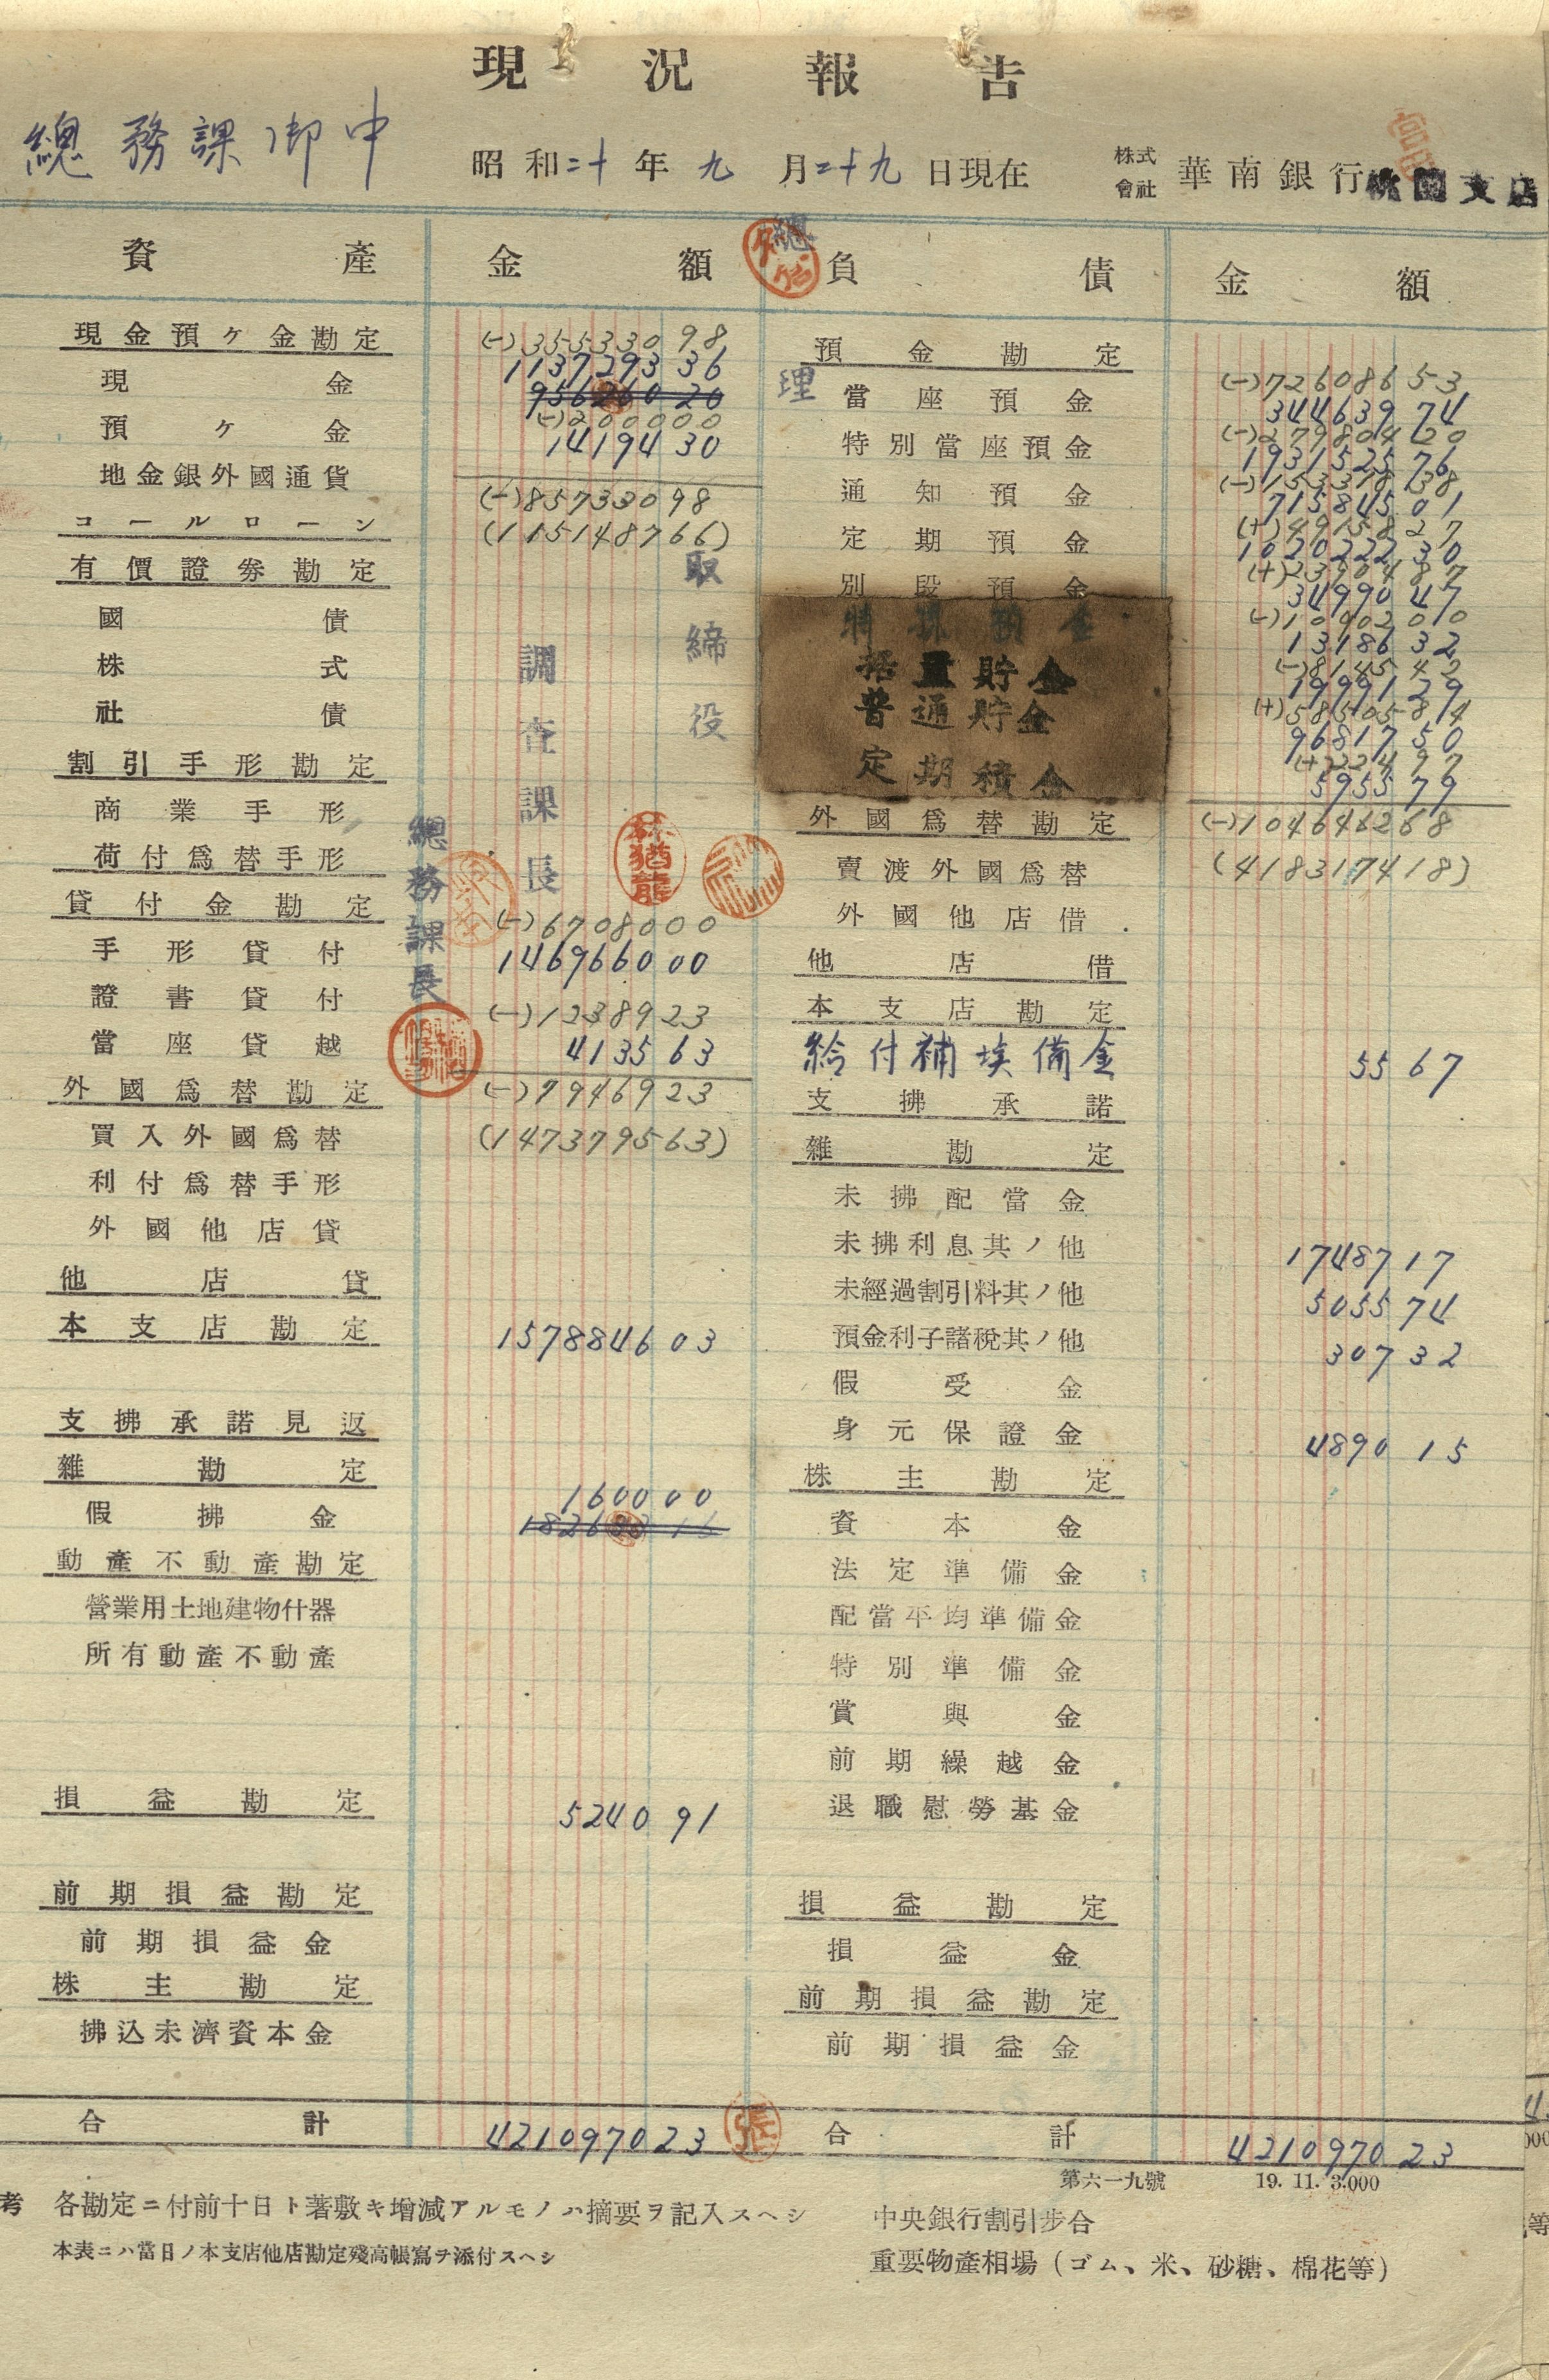 現況報告
總務課御中
昭和二十年九月二十九日現在
株式會社 華南銀行 桃園支店
資產 金額 負債 金額
現金預ケ金勘定
(-)355330 98
現金 1137293 36
956260 20
(-)2000 00
預ケ金 14194 30
地金銀外國通貨
(-)857330 98
コールローン (1151487 66)
有價證券勘定
國債
株式
社債
割引手形勘定
商業手形
荷付爲替手形
貸付金勘定
(-)67080 00
手形貸付 1469660 00
證書貸付
(-)12389 23
當座貸越 4135 63
外國爲替勘定 (-)79469 23
買入外國爲替 (1473795 63)
利付爲替手形
外國他店貸
他店貸
本支店勘定 1578846 03
支拂承諾見返
雜勘定
1600 00
假拂金
動產不動產勘定
營業用土地建物什器
所有動產不動產
損益勘定 5240 91
前期損益勘定
前期損益金
株主勘定
拂込未濟資本金
合計 4210970 23
總理
取締役
調查課長
總務課長
林猶龍
張
預金勘定
(-)726086 53
當座預金 344639 74
(-)279804 20
特別當座預金 1931525 76
通知預金 715845 01
(+)49158 27
定期預金 1020222 30
(+)23904 87
別段預金 34990 47
(-)109020 10
特殊預金 13186 32
(-)8145 42
据置貯金 19991 29
(+)58505 84
普通貯金 96817 50
定期積金 5955 79
外國爲替勘定 (-)1046462 68
賣渡外國爲替 (4183174 18)
外國他店借
他店借
本支店勘定
給付補填備金 55 67
支拂承諾
雜勘定
未拂配當金
未拂利息其ノ他 17487 17
未經過割引料其ノ他 5055 74
預金利子諸稅其ノ他 307 32
假受金
身元保證金 4890 15
株主勘定
資本金
法定準備金
配當平均準備金
特別準備金
賞與金
前期繰越金
退職慰勞基金
損益勘定
損益金
前期損益勘定
前期損益金
合計 4210970 23
第六一九號 19. 11. 3.000
考 各勘定ニ付前十日ト著敷キ增減アルモノハ摘要ヲ記入スヘシ
本表ニハ當日ノ本支店他店勘定殘高帳寫ヲ添付スヘシ
中央銀行割引步合
重要物產相場(ゴム、米、砂糖、棉花等)